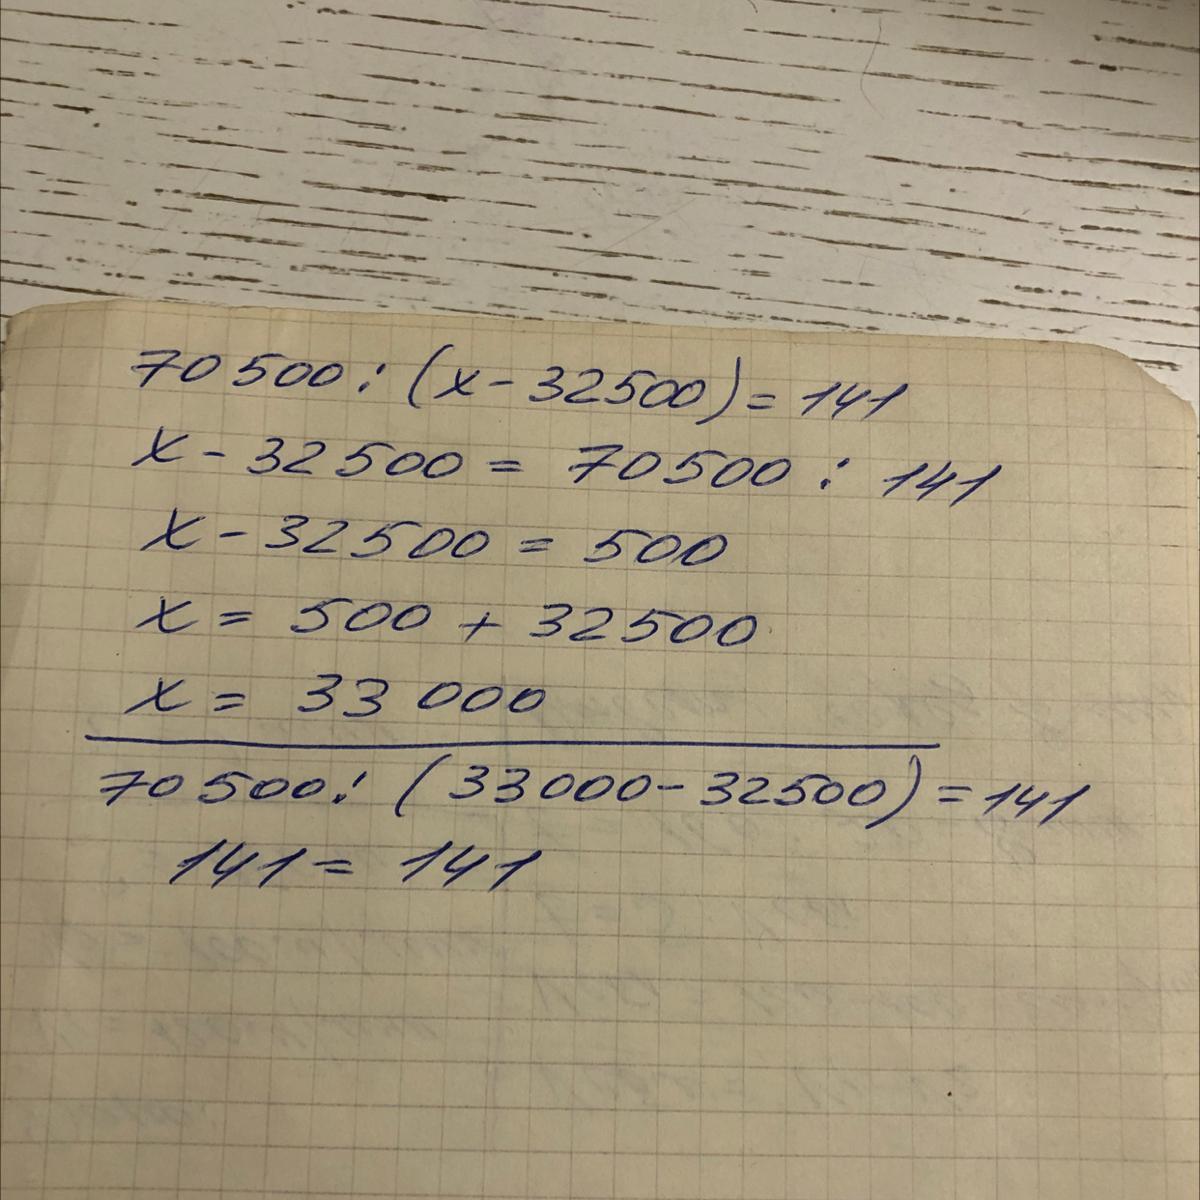 70500 : (x - 32500) = 141
x - 32500 = 70500 : 141
x - 32500 = 500
x = 500 + 32500
x = 33 000
70500 : (33000 - 32500) = 141
141 = 141